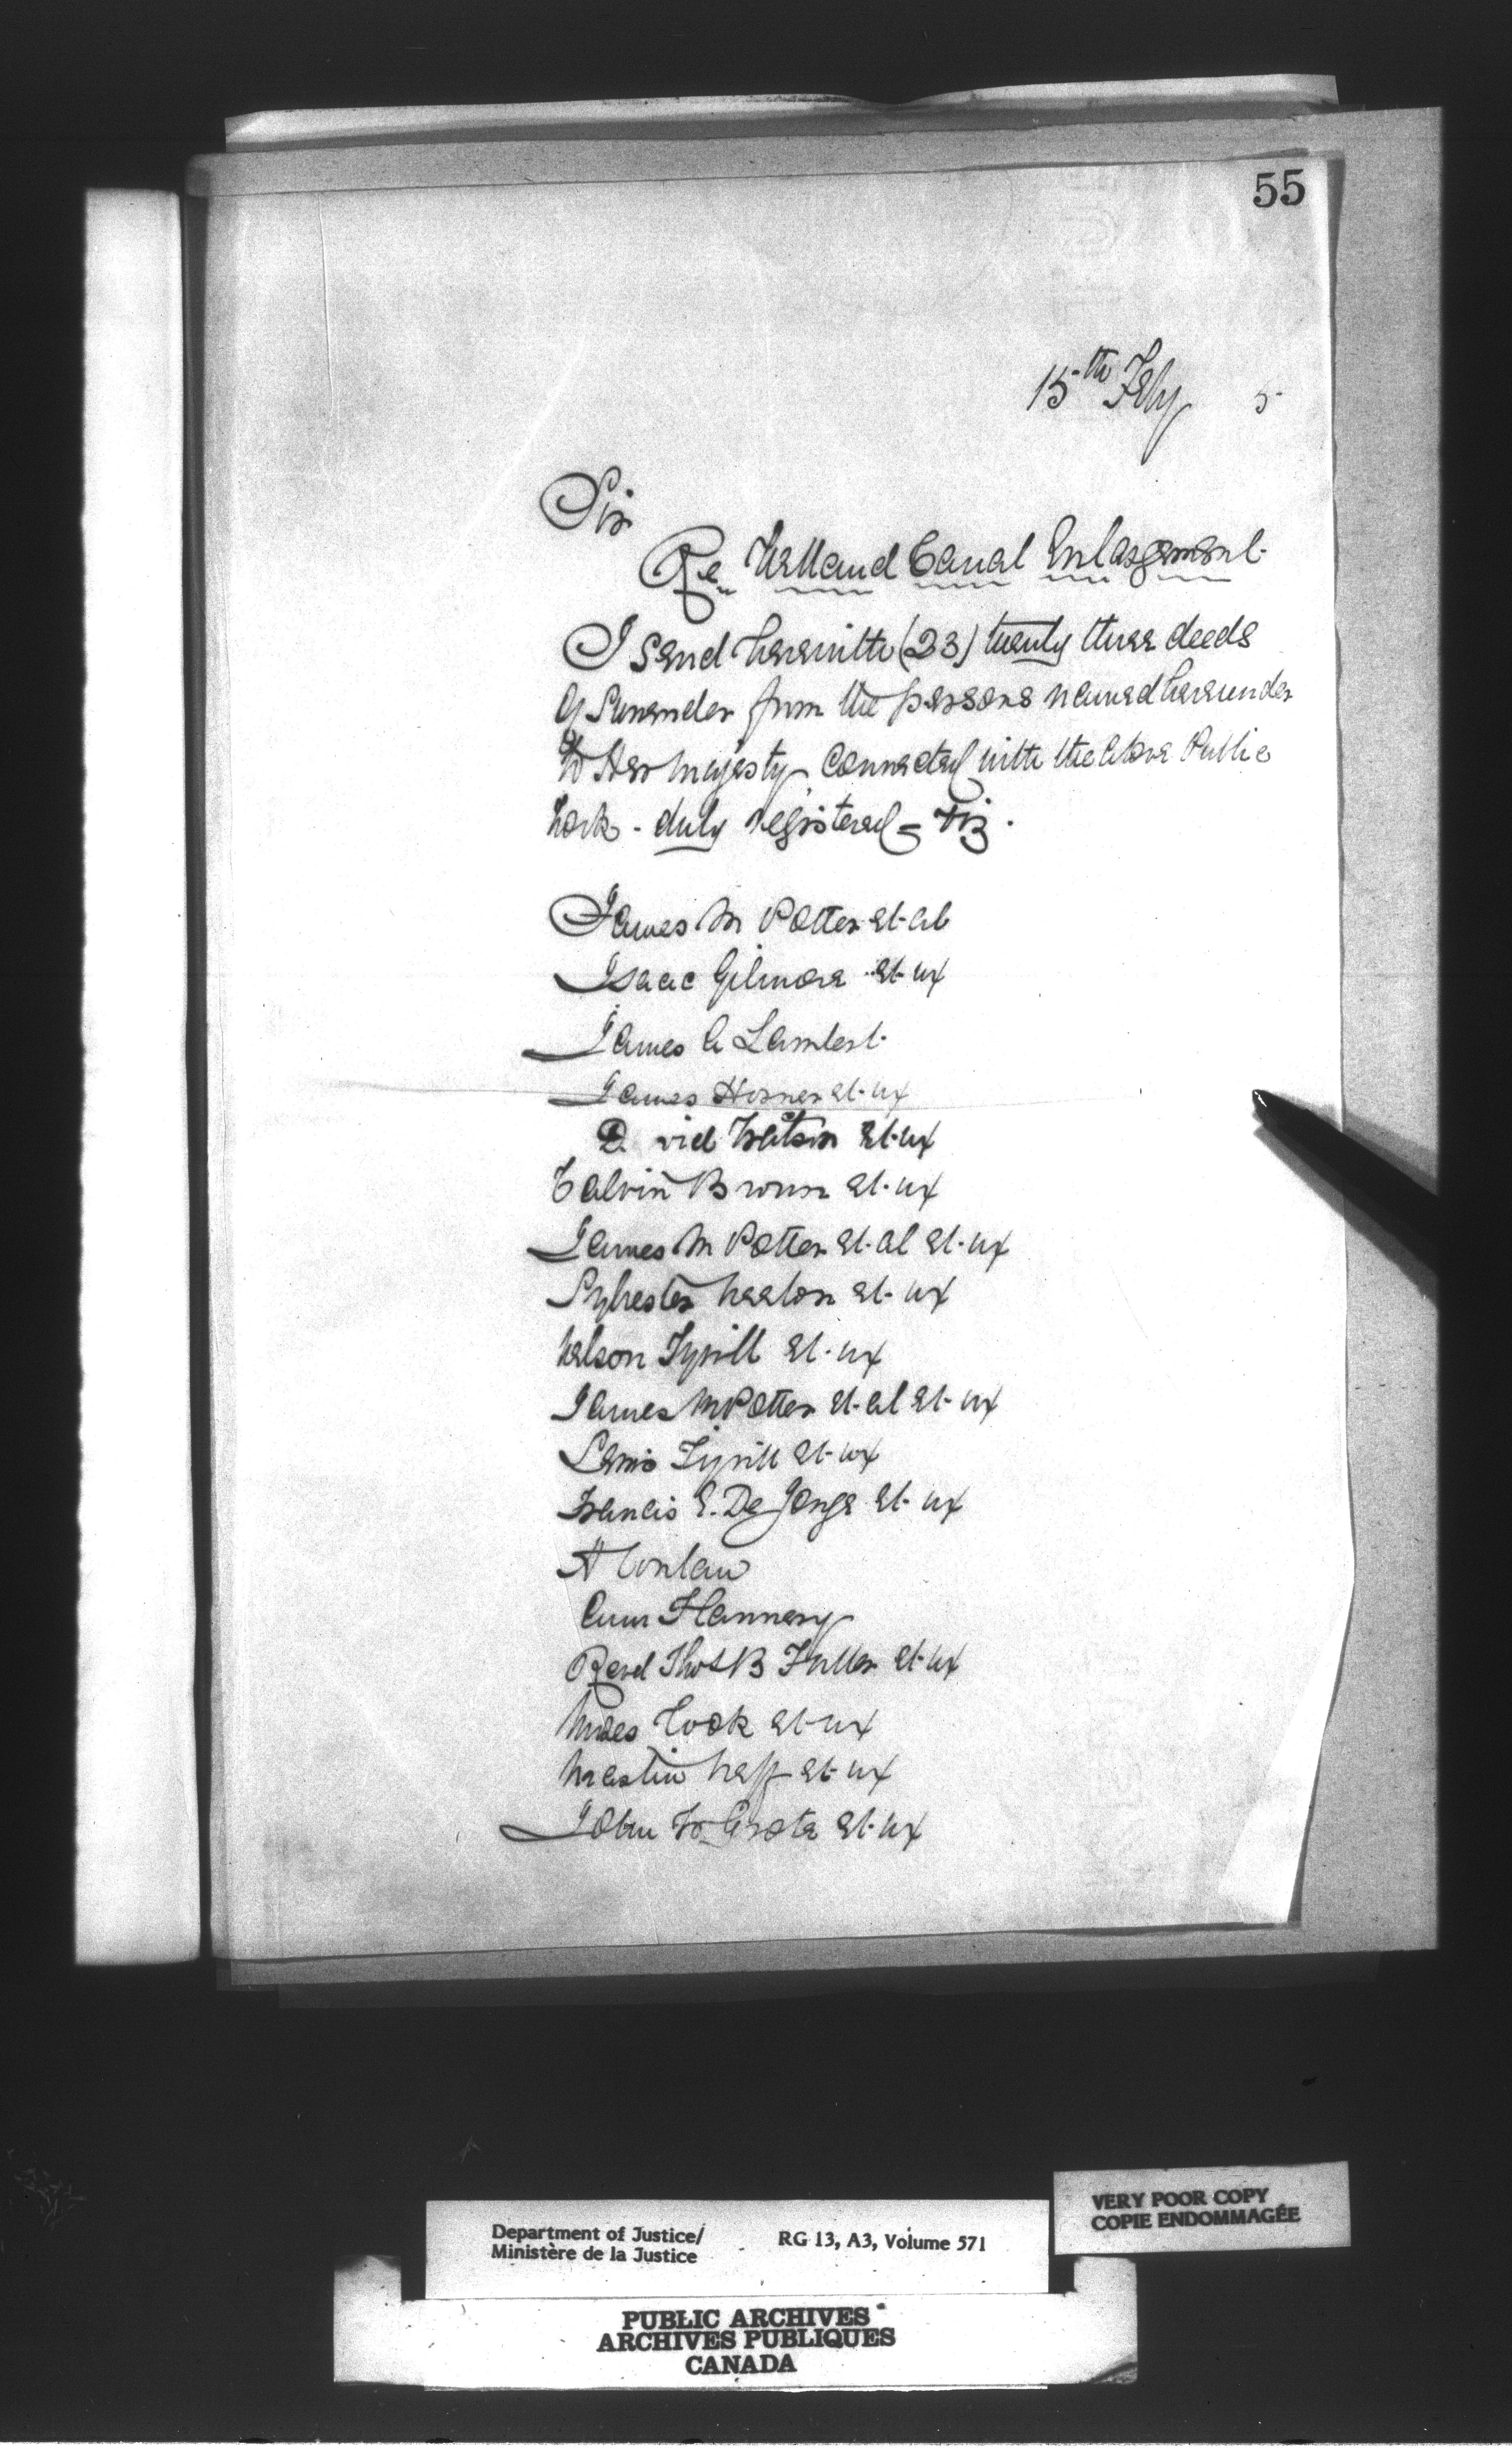 55
15th Feby 5
Sir
Re Welland Canal Enlargement
I send herewith (23) twenty three deeds
of Surrender from the persons named hereunder
to Her Majesty connected with the above Public
Work - duly registered - viz.
James M Potter et al
Isaac Gilmore et ux
James A Lambert
James Horner et ux
D vid Watson et ux
Calvin Brown et ux
James M Potter et al et ux
Sylvester Neelon et ux
Nelson Tyrill et ux
James M Potter et al et ux
Lewis Tyrill et ux
Francis E. De Jonge et ux
A Conlan
Ann Flannery
Revd Thos B Fuller et ux
Moses Cook et ux
Martin Neff et ux
John W Grote et ux
VERY POOR COPY
COPIE ENDOMMAGÉE
Department of Justice/ RG 13, A3, Volume 571
Ministère de la Justice
PUBLIC ARCHIVES
ARCHIVES PUBLIQUES
CANADA